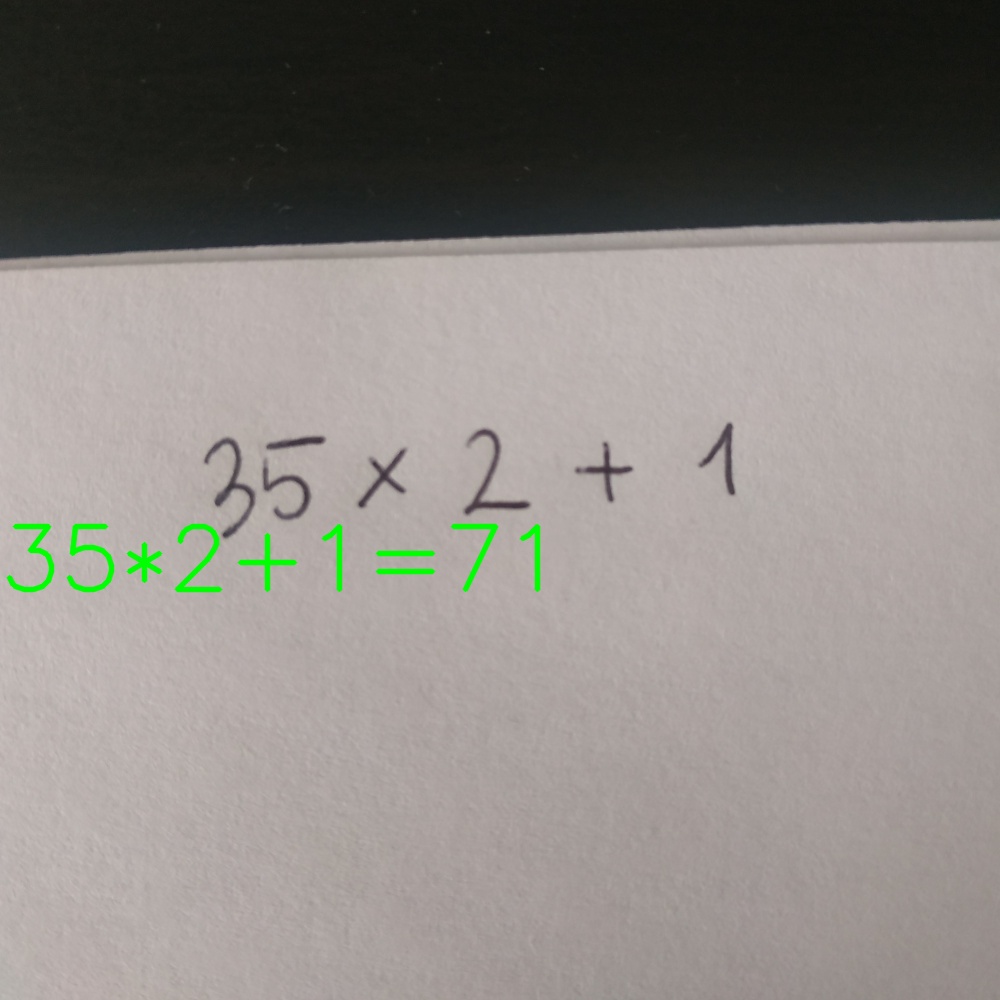 35 × 2 + 1
35*2+1=71